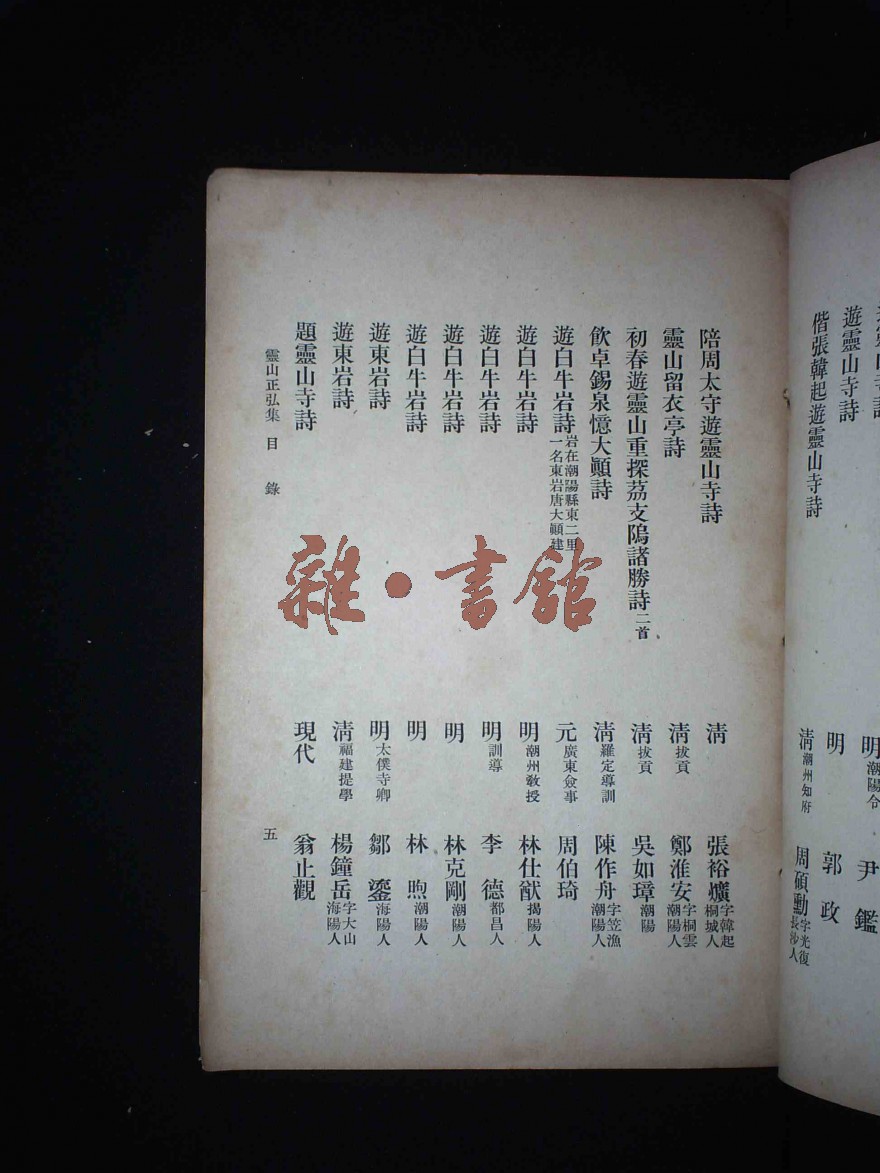 遊靈山寺詩 明 郭政
偕張韓起遊靈山寺詩 清潮州知府 周碩勳字光復長沙人
明潮陽令 尹鑑
陪周太守遊靈山寺詩 清 張裕爌字韓起桐城人
靈山留衣亭詩 清拔貢 鄭淮安字桐雲潮陽人
初春遊靈山重探荔支隖諸勝詩二首 清拔貢 吳如璋潮陽
飲卓錫泉憶大顚詩 清羅定導訓 陳作舟字笠漁潮陽人
遊白牛岩詩岩在潮陽縣東二里一名東岩唐大顚建 元廣東僉事 周伯琦
遊白牛岩詩 明潮州教授 林仕猷揭陽人
遊白牛岩詩 明訓導 李德都昌人
遊白牛岩詩 明 林克剛潮陽人
遊白牛岩詩 明 林煦潮陽人
遊東岩詩 明太僕寺卿 鄒鎏海陽人
遊東岩詩 清福建提學 楊鐘岳字大山海陽人
題靈山寺詩 現代 翁止觀
靈山正弘集 目錄 五
雜·書館